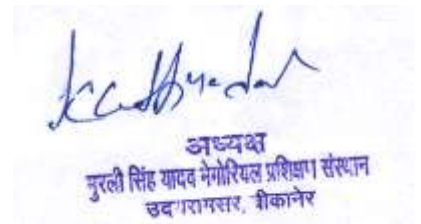 अध्यक्ष
मुरली सिंह यादव मेमोरियल प्रशिक्षण संस्थान
उदयरामसर, बीकानेर